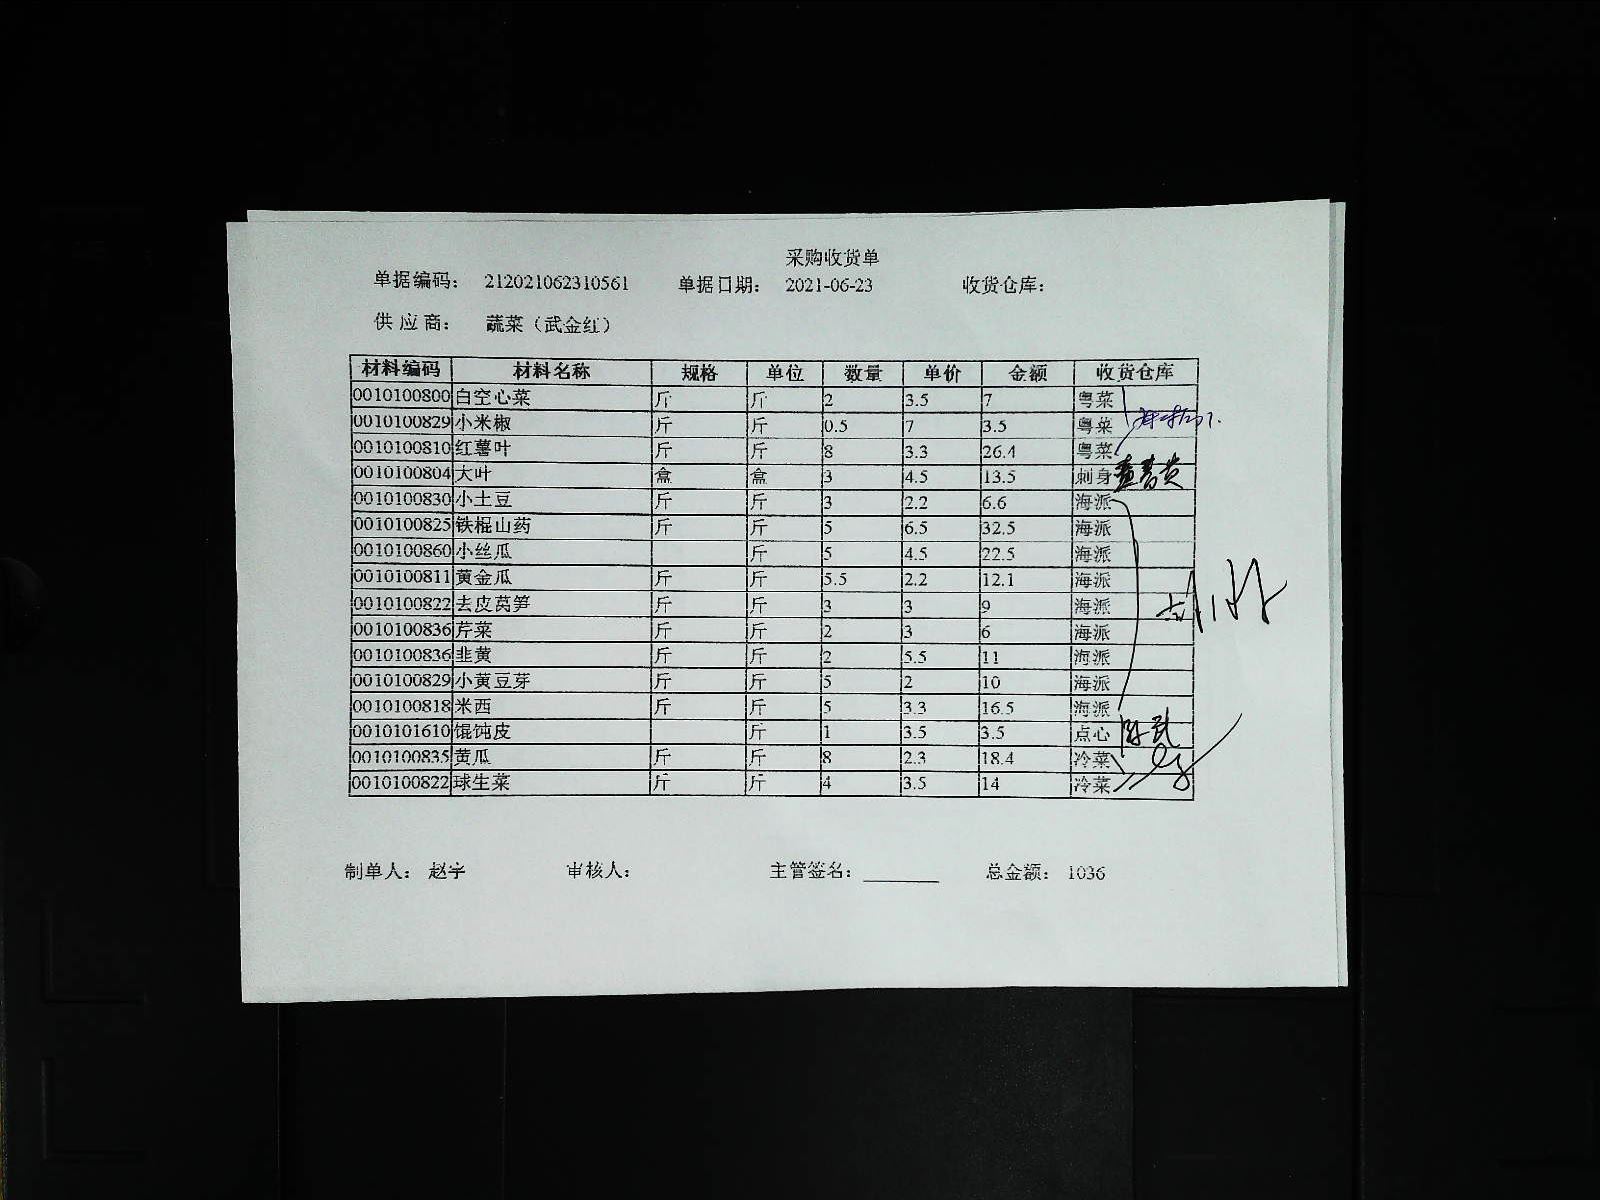 采购收货单
单据编码： 212021062310561 单据日期： 2021-06-23 收货仓库：
供应商： 蔬菜（武金红）
材料编码 材料名称 规格 单位 数量 单价 金额 收货仓库
0010100800 白空心菜 斤 斤 2 3.5 7 粤菜
0010100829 小米椒 斤 斤 0.5 7 3.5 粤菜
0010100810 红薯叶 斤 斤 8 3.3 26.4 粤菜
0010100804 大叶 盒 盒 3 4.5 13.5 刺身
0010100830 小土豆 斤 斤 3 2.2 6.6 海派
0010100825 铁棍山药 斤 斤 5 6.5 32.5 海派
0010100860 小丝瓜 斤 5 4.5 22.5 海派
0010100811 黄金瓜 斤 斤 5.5 2.2 12.1 海派
0010100822 去皮莴笋 斤 斤 3 3 9 海派
0010100836 芹菜 斤 斤 2 3 6 海派
0010100836 韭黄 斤 斤 2 5.5 11 海派
0010100829 小黄豆芽 斤 斤 5 2 10 海派
0010100818 米西 斤 斤 5 3.3 16.5 海派
0010101610 馄饨皮 斤 1 3.5 3.5 点心
0010100835 黄瓜 斤 斤 8 2.3 18.4 冷菜
0010100822 球生菜 斤 斤 4 3.5 14 冷菜
制单人： 赵宇 审核人： 主管签名： 总金额： 1036